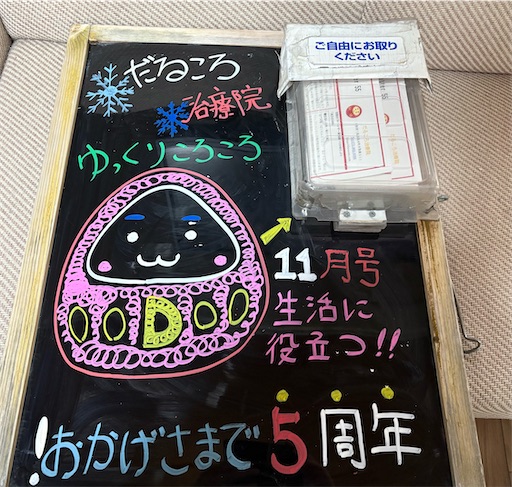 ご自由にお取り
ください
だるころ
治療院
ゆっくりころころ
11月号
生活に
役立つ!!
OODOO
おかげさまで5周年!